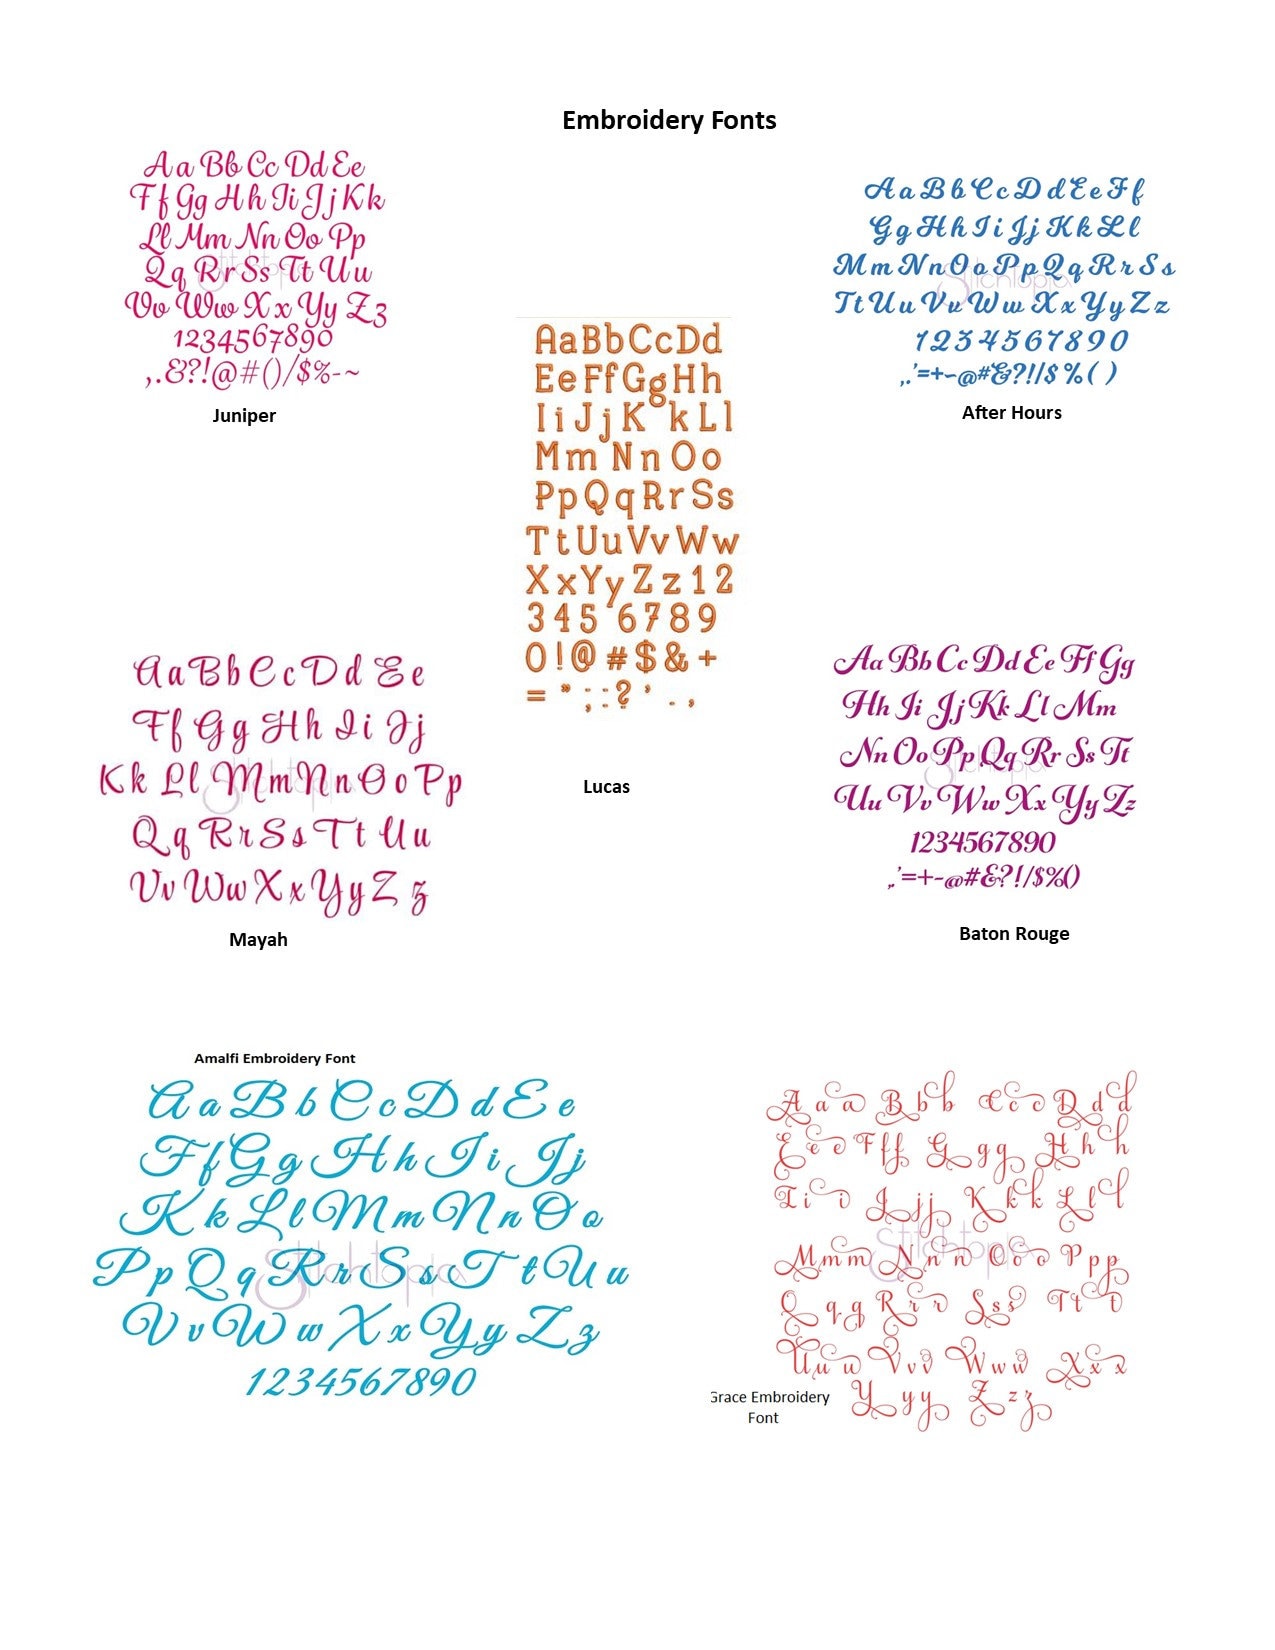 Embroidery Fonts
Aa Bb Cc Dd Ee
Ff Gg Hh Ii Jj Kk
Ll Mm Nn Oo Pp
Qq Rr Ss Tt Uu
Vv Ww Xx Yy Zz
1234567890
,.&?!@#()/$%-~
Juniper
Aa Bb Cc Dd Ee Ff
Gg Hh Ii Jj Kk Ll
Mm Nn Oo Pp Qq Rr Ss
Tt Uu Vv Ww Xx Yy Zz
1234567890
,.'=+-~@#&?!/$%()
After Hours
AaBbCcDd
EeFfGgHh
IiJjKkLl
Mm Nn Oo
PpQqRrSs
TtUuVvWw
XxYyZz12
345 6789
0!@#$&+
= " ; : ? ' . ,
Lucas
Aa Bb Cc Dd Ee
Ff Gg Hh Ii Jj
Kk Ll Mm Nn Oo Pp
Qq Rr Ss Tt Uu
Vv Ww Xx Yy Zz
Mayah
Aa Bb Cc Dd Ee Ff Gg
Hh Ii Jj Kk Ll Mm
Nn Oo Pp Qq Rr Ss Tt
Uu Vv Ww Xx Yy Zz
1234567890
,.'=+-@#&?!/$%()
Baton Rouge
Amalfi Embroidery Font
Aa Bb Cc Dd Ee
Ff Gg Hh Ii Jj
Kk Ll Mm Nn Oo
Pp Qq Rr Ss Tt Uu
Vv Ww Xx Yy Zz
1234567890
Stitchtopia
Aaa Bbb Ccc Ddd
Eee Fff Ggg Hhh
Iii Jjj Kkk Lll
Mmm Nnn Ooo Ppp
Qqq Rrr Sss Ttt
Uuu Vvv Www Xxx
Yyy Zzz
Grace Embroidery
Font